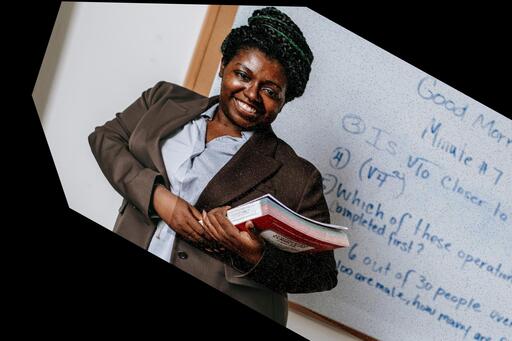 Good Morn
Minute #7
③ Is √10 closer to
④ (√4)²
Which of these operation
completed first?
6 out of 30 people over
100 are male, how many are